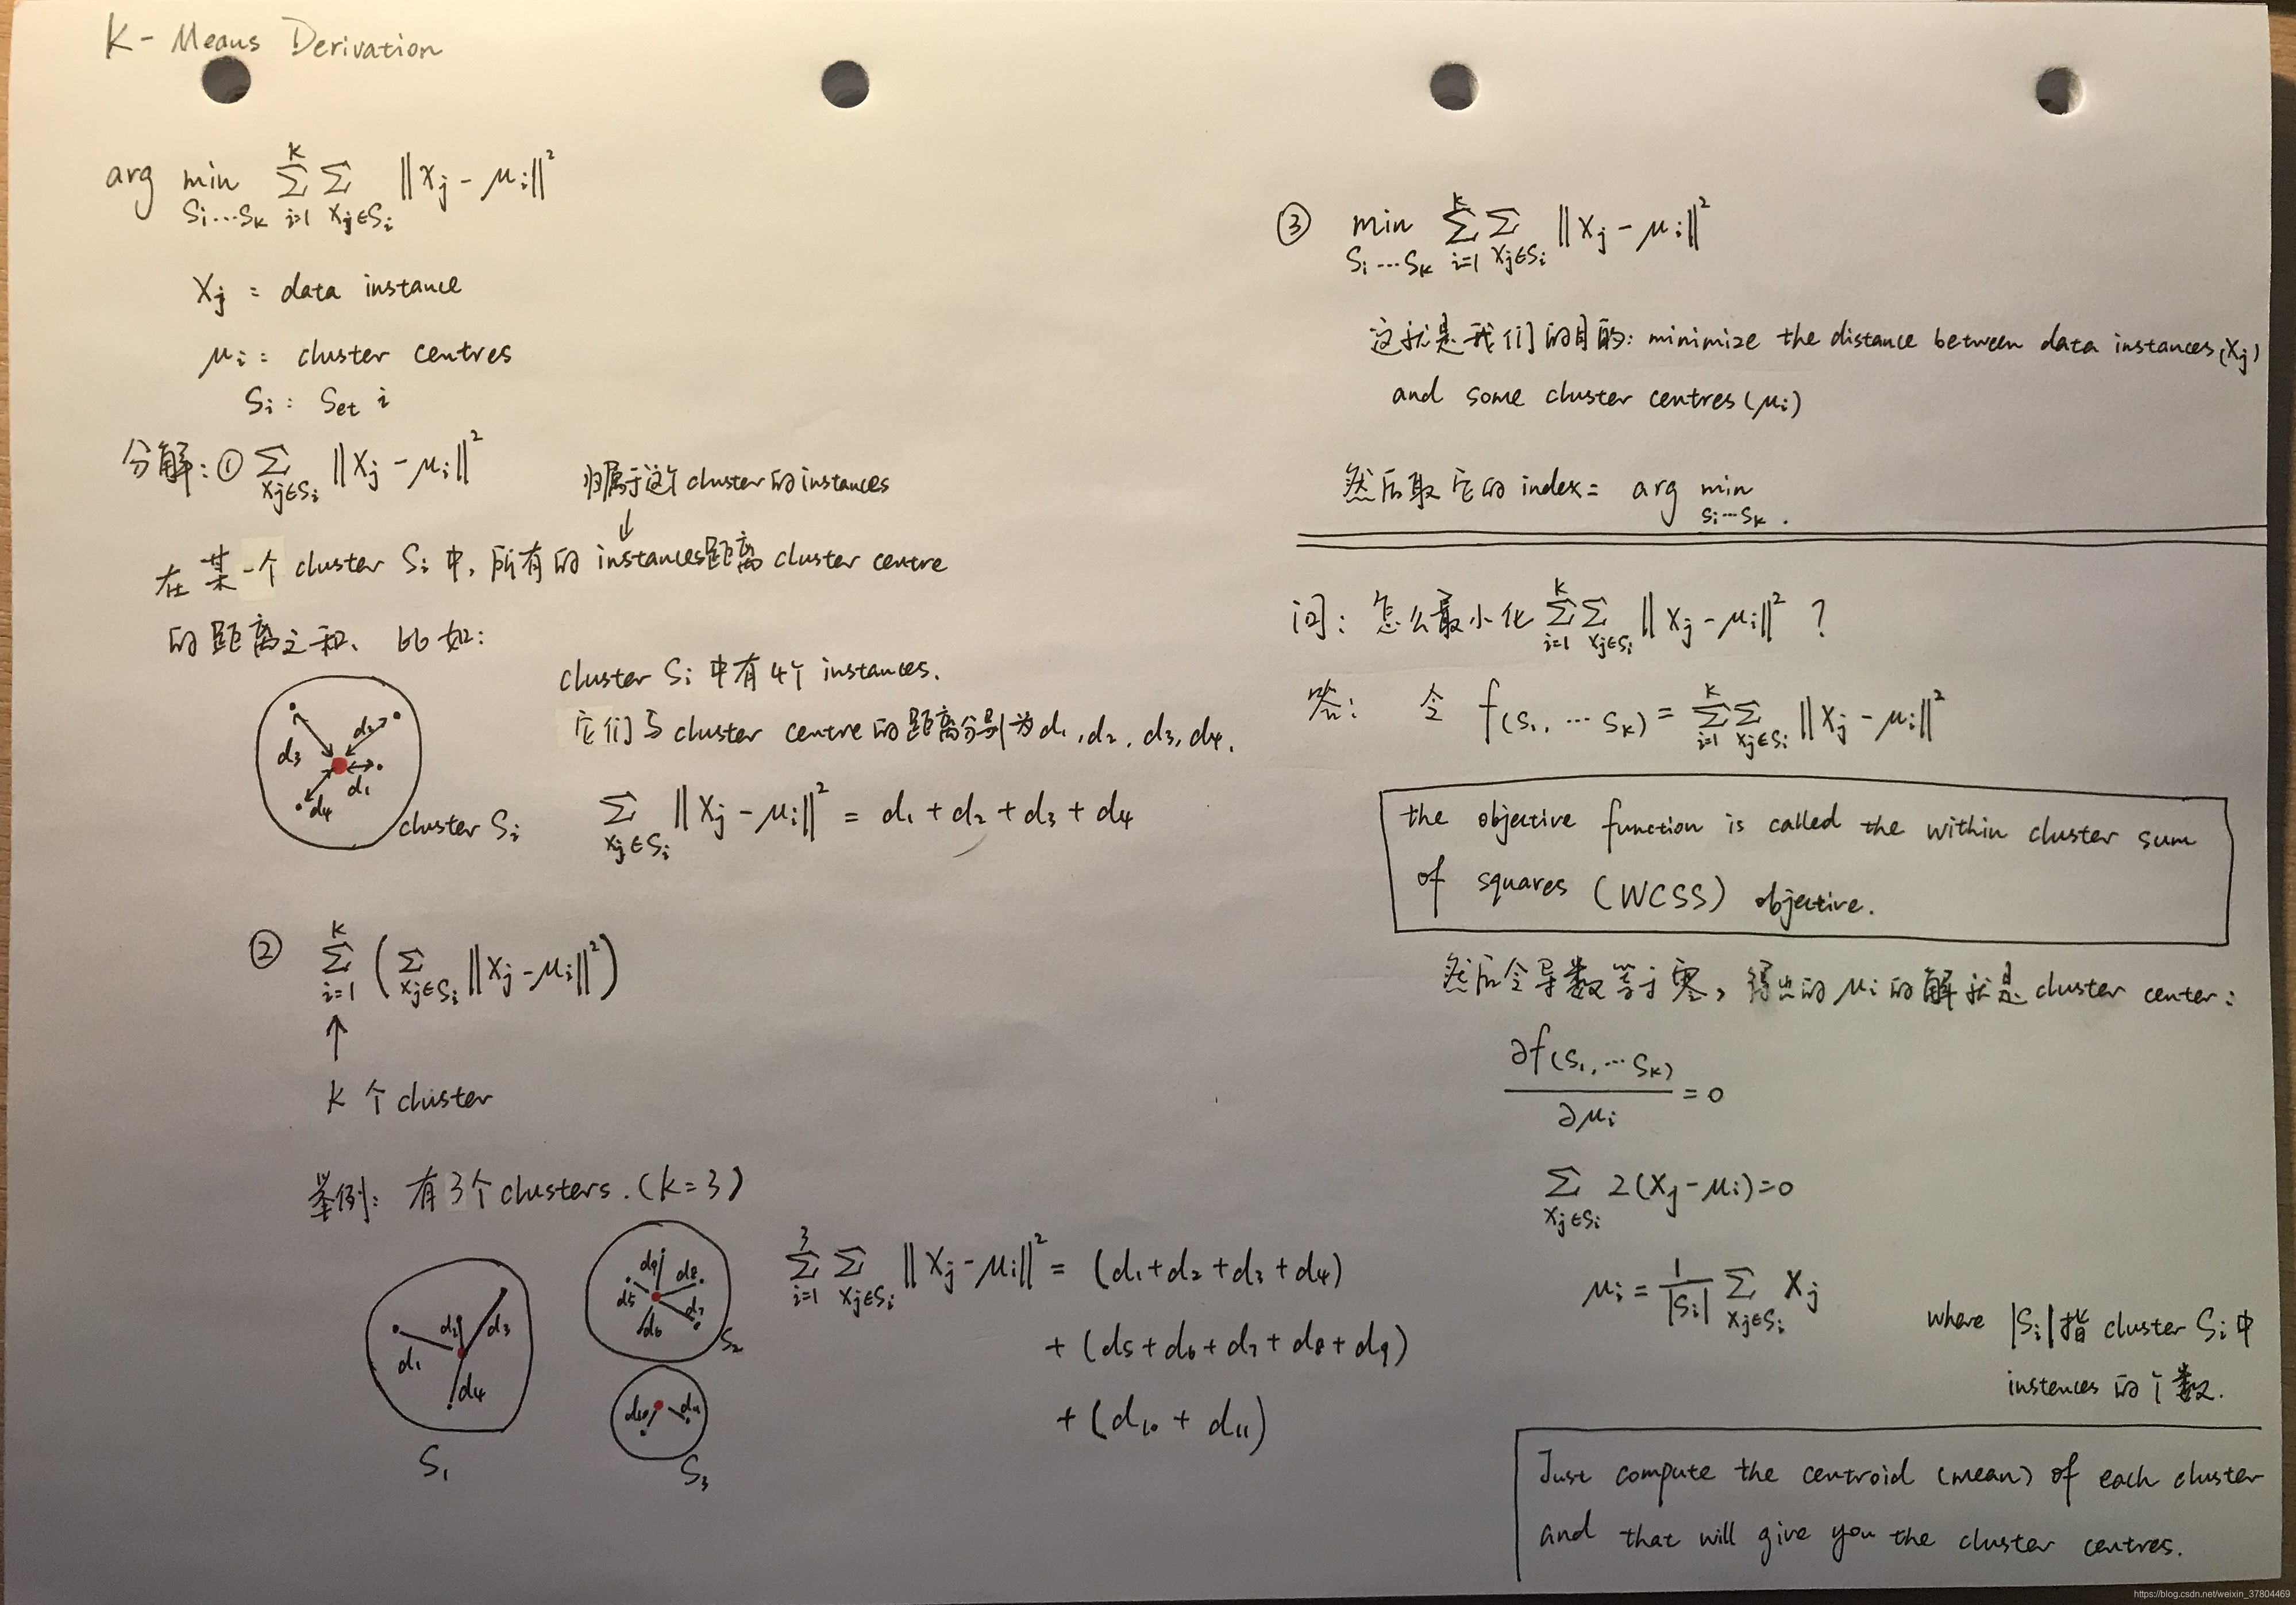 K-Means Derivation
arg min_{S_i...S_k} \sum_{i=1}^{k} \sum_{X_j∈S_i} ||X_j - μ_i||^2
X_j = data instance
μ_i : cluster centres
S_i : Set i
分解: ① \sum_{X_j∈S_i} ||X_j - μ_i||^2
归属于这个cluster的instances
↓
在某一个cluster S_i 中, 所有的instances距离cluster centre
的距离之和、比如:
d_3 d_2 d_1 d_4
cluster S_i
cluster S_i 中有4个 instances.
它们与cluster centre的距离分别为d_1, d_2, d_3, d_4.
\sum_{X_j∈S_i} ||X_j - μ_i||^2 = d_1 + d_2 + d_3 + d_4
② \sum_{i=1}^{k} ( \sum_{X_j∈S_i} ||X_j - μ_i||^2 )
↑
k 个 cluster
举例: 有3个clusters. (k=3)
d_1 d_2 d_3 d_4
S_1
d_9 d_8 d_5 d_7 d_6
S_2
d_10 d_11
S_3
\sum_{i=1}^{3} \sum_{X_j∈S_i} ||X_j - μ_i||^2 = (d_1 + d_2 + d_3 + d_4)
+ (d_5 + d_6 + d_7 + d_8 + d_9)
+ (d_10 + d_11)
③ min_{S_i...S_k} \sum_{i=1}^{k} \sum_{X_j∈S_i} ||X_j - μ_i||^2
这就是我们的目的: minimize the distance between data instances(X_j)
and some cluster centres(μ_i)
然后取它的index = arg min_{S_i...S_k}.
问: 怎么最小化 \sum_{i=1}^{k} \sum_{X_j∈S_i} ||X_j - μ_i||^2 ?
答: 令 f(S_1, ... S_k) = \sum_{i=1}^{k} \sum_{X_j∈S_i} ||X_j - μ_i||^2
the objective function is called the within cluster sum
of squares (WCSS) objective.
然后令导数等于零, 得出的μ_i的解就是cluster center:
∂f(S_1, ... S_k) / ∂μ_i = 0
\sum_{X_j∈S_i} 2(X_j - μ_i) = 0
μ_i = \frac{1}{|S_i|} \sum_{X_j∈S_i} X_j
where |S_i|指cluster S_i中
instences的个数.
Just compute the centroid (mean) of each cluster
and that will give you the cluster centres.
https://blog.csdn.net/weixin_37804469